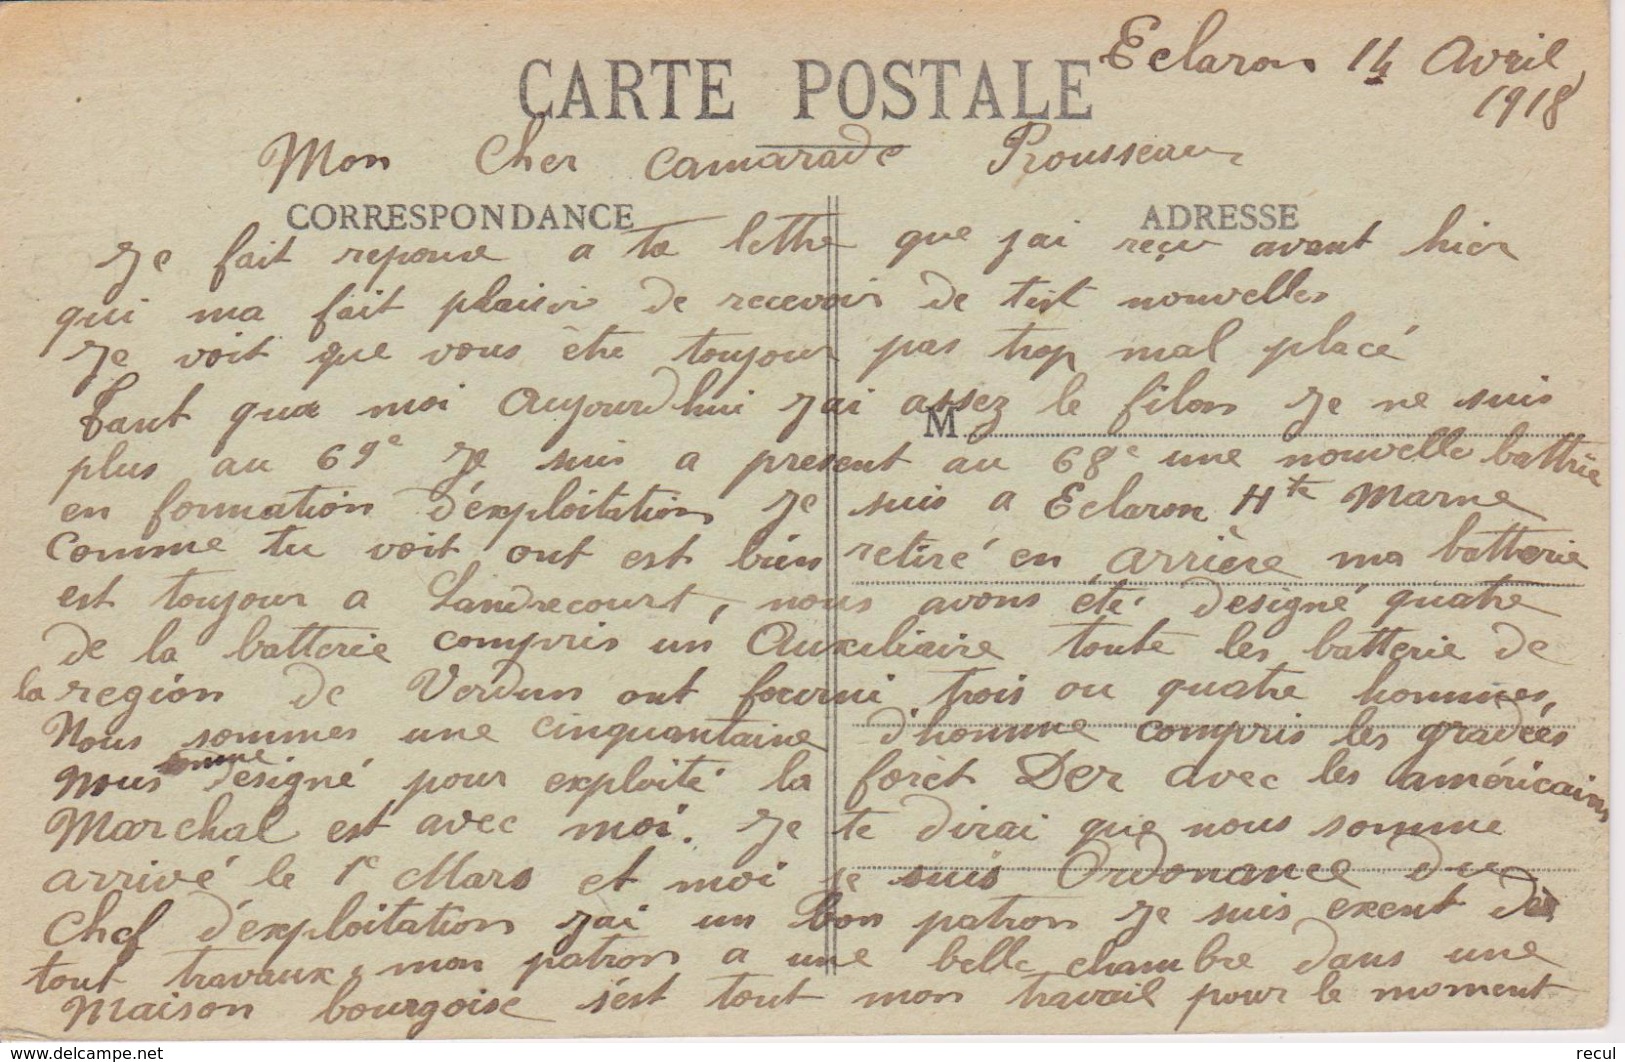 Eclaron 14 Avril
1918
CARTE POSTALE
Mon Cher Camarade Rousseau
CORRESPONDANCE ADRESSE
Je fait reponse a ta lettre que j'ai reçu avant hier
qui ma fait plaisir de recevoir de test nouvelles
Je voit que vous être toujour pas trop mal placé
Tant qua moi Aujourd'hui J'ai assez le filon Je ne suis
M
plus au 69e Je suis a present au 68e une nouvelle battrie
en formation d'exploitation Je suis a Eclaron Hte Marne
Comme tu voit ont est bien retiré en arrière ma batterie
est toujour a Landrecourt, nous avons été designé quatre
de la batterie compris un Auxiliaire toute les batterie de
la region de Verdun ont fourni trois ou quatre hommes,
Nous sommes une cinquantaine d'homme compris les gradées
Nous somme designé pour exploité la forèt Der avec les américains
Marchal est avec moi. Je te dirai que nous somme
arrivé le 1e Mars et moi je suis Ordonance du
Chef d'exploitation J'ai un bon patron Je suis exent de
tout travaux, mon patron a une belle chambre dans une
Maison bourgoise s'est tout mon travail pour le moment
www.delcampe.net recul